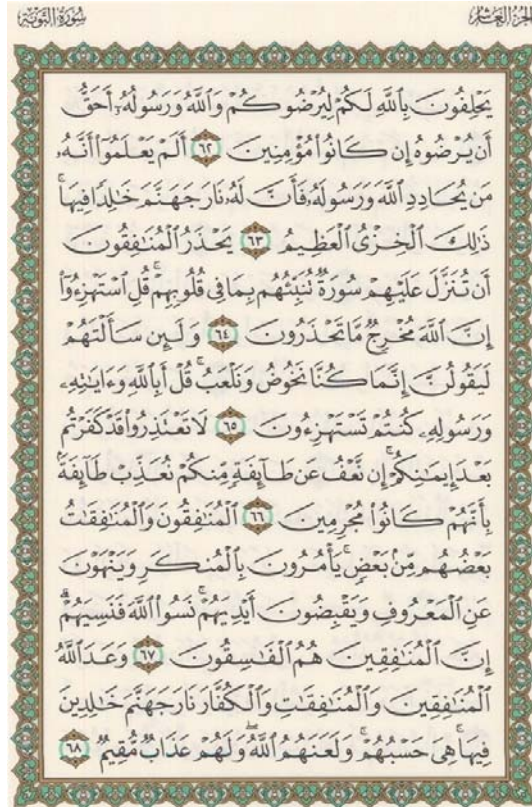 الجزء العاشر
سورة التوبة
يَحْلِفُونَ بِٱللَّهِ لَكُمْ لِيُرْضُوكُمْ وَٱللَّهُ وَرَسُولُهُۥٓ أَحَقُّ
أَن يُرْضُوهُ إِن كَانُوا۟ مُؤْمِنِينَ ٦٢ أَلَمْ يَعْلَمُوٓا۟ أَنَّهُۥ
مَن يُحَادِدِ ٱللَّهَ وَرَسُولَهُۥ فَأَنَّ لَهُۥ نَارَ جَهَنَّمَ خَٰلِدًا فِيهَا ۚ
ذَٰلِكَ ٱلْخِزْىُ ٱلْعَظِيمُ ٦٣ يَحْذَرُ ٱلْمُنَٰفِقُونَ
أَن تُنَزَّلَ عَلَيْهِمْ سُورَةٌ تُنَبِّئُهُم بِمَا فِى قُلُوبِهِمْ ۚ قُلِ ٱسْتَهْزِءُوٓا۟
إِنَّ ٱللَّهَ مُخْرِجٌ مَّا تَحْذَرُونَ ٦٤ وَلَئِن سَأَلْتَهُمْ
لَيَقُولُنَّ إِنَّمَا كُنَّا نَخُوضُ وَنَلْعَبُ ۚ قُلْ أَبِٱللَّهِ وَءَايَٰتِهِۦ
وَرَسُولِهِۦ كُنتُمْ تَسْتَهْزِءُونَ ٦٥ لَا تَعْتَذِرُوا۟ قَدْ كَفَرْتُم
بَعْدَ إِيمَٰنِكُمْ ۚ إِن نَّعْفُ عَن طَآئِفَةٍ مِّنكُمْ نُعَذِّبْ طَآئِفَةًۢ
بِأَنَّهُمْ كَانُوا۟ مُجْرِمِينَ ٦٦ ٱلْمُنَٰفِقُونَ وَٱلْمُنَٰفِقَٰتُ
بَعْضُهُم مِّنۢ بَعْضٍ ۚ يَأْمُرُونَ بِٱلْمُنكَرِ وَيَنْهَوْنَ
عَنِ ٱلْمَعْرُوفِ وَيَقْبِضُونَ أَيْدِيَهُمْ ۚ نَسُوا۟ ٱللَّهَ فَنَسِيَهُمْ ۗ
إِنَّ ٱلْمُنَٰفِقِينَ هُمُ ٱلْفَٰسِقُونَ ٦٧ وَعَدَ ٱللَّهُ
ٱلْمُنَٰفِقِينَ وَٱلْمُنَٰفِقَٰتِ وَٱلْكُفَّارَ نَارَ جَهَنَّمَ خَٰلِدِينَ
فِيهَا ۚ هِىَ حَسْبُهُمْ ۚ وَلَعَنَهُمُ ٱللَّهُ ۖ وَلَهُمْ عَذَابٌ مُّقِيمٌ ٦٨